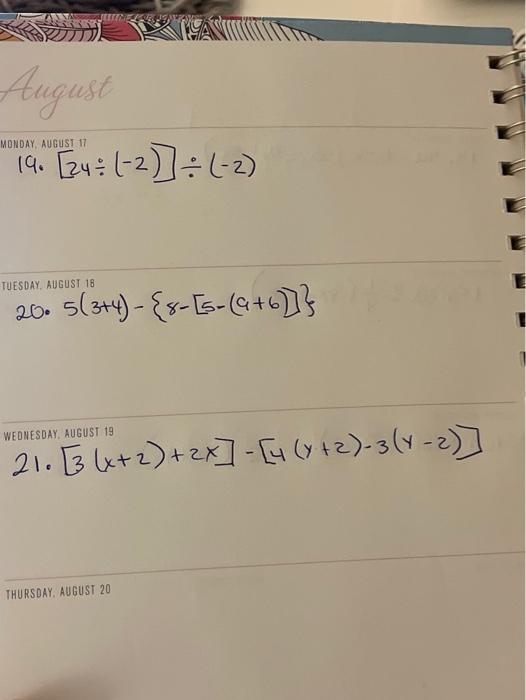 August
MONDAY, AUGUST 17
19. [24÷(-2)]÷(-2)
TUESDAY, AUGUST 18
20. 5(3+4)-{8-[5-(9+6)]}
WEDNESDAY, AUGUST 19
21. [3(x+2)+2x]-[4(y+2)-3(y-2)]
THURSDAY, AUGUST 20